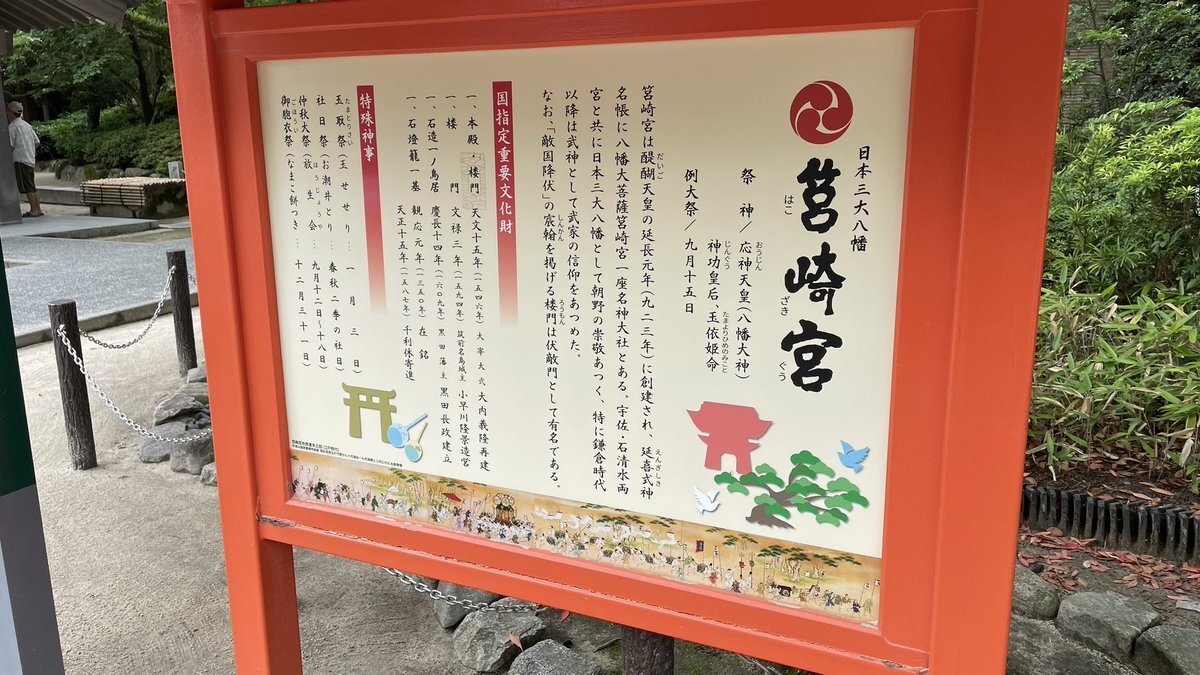 日本三大八幡
筥崎宮
はこざきぐう
祭神／応神天皇(八幡大神)
おうじん
神功皇后、玉依姫命
じんぐう たまよりひめのみこと
例大祭／九月十五日
筥崎宮は醍醐天皇の延長元年(九二三年)に創建され、延喜式神
だいご えんぎしき
名帳に八幡大菩薩筥崎宮一座名神大社とある。宇佐・石清水両
宮と共に日本三大八幡として朝野の崇敬あつく、特に鎌倉時代
以降は武神として武家の信仰をあつめた。
なお、「敵国降伏」の宸翰を掲げる楼門は伏敵門として有名である。
しんかん ろうもん
国指定重要文化財
一、本殿・楼門 天文十五年(一五四六年) 大宰大弐 大内義隆再建
一、楼門 文禄三年(一五九四年) 筑前名島城主 小早川隆景造営
一、石造一ノ鳥居 慶長十四年(一六〇九年) 黒田藩主 黒田長政建立
一、石燈籠一基 観応元年(一三五〇年) 在銘
天正十五年(一五八七年) 千利休寄進
特殊神事
玉取祭(玉せせり)… 一月三日
たまとりさい
社日祭(お潮井とり)… 春秋二季の社日
仲秋大祭(放生会)… 九月十二日〜十八日
ほうじょうや
御胞衣祭(なまこ餅つき)… 十二月三十一日
ごほうい